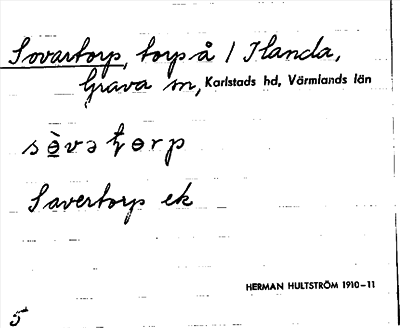 Sovartorp, torp å / Ilanda,
Grava sn, Karlstads hd, Värmlands län
sɵ̀vəʈɵrp
Savertorp ek
HERMAN HULTSTRÖM 1910–11
5